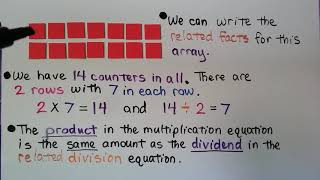 •We can write the
related facts for this
array.
•We have 14 counters in all. There are
2 rows with 7 in each row.
2 × 7 = 14 and 14 ÷ 2 = 7
•The product in the multiplication equation
is the same amount as the dividend in the
related division equation.